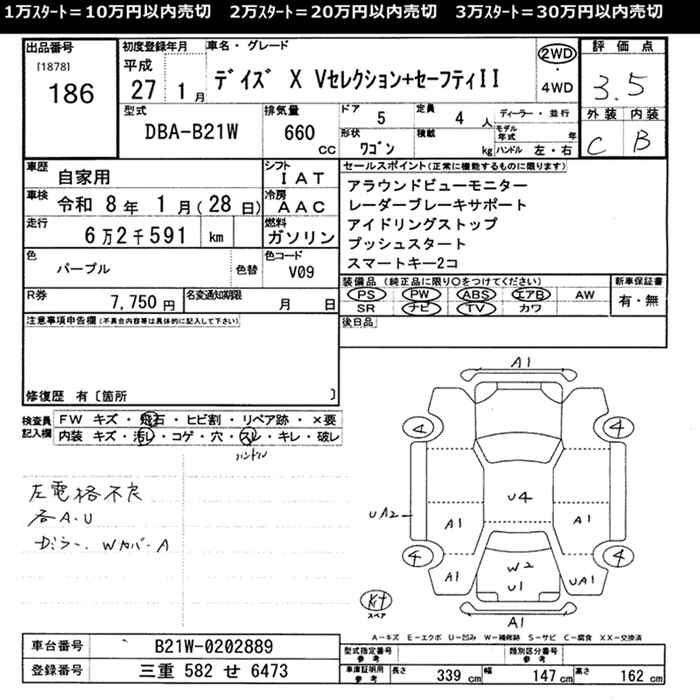 1万ｽﾀｰﾄ＝10万円以内売切　2万ｽﾀｰﾄ＝20万円以内売切　3万ｽﾀｰﾄ＝30万円以内売切
出品番号
[1878]
186
初度登録年月
平成
27 1月
車名・グレード
ﾃﾞｲｽﾞ X Vｾﾚｸｼｮﾝ+ｾｰﾌﾃｨII
2WD
・
4WD
評価点
3.5
外装 内装
C B
型式
DBA-B21W
排気量
660 CC
ドア
5
定員
4 人
形状
ﾜｺﾞﾝ
積載
kg
ディーラー・並行
モデル年式 年
ハンドル 左・右
車歴
自家用
シフト
IAT
車検
令和 8年 1月(28日)
冷房
AAC
走行
6万2千591 km
燃料
ガソリン
色
パープル
色替
色コード
V09
R券
7,750円
名変通知期限
月 日
セールスポイント(正常に機能するものに限ります)
アラウンドビューモニター
レーダーブレーキサポート
アイドリングストップ
プッシュスタート
スマートキー2コ
装備品(純正品に限り○をつけてください)
PS PW ABS エアB AW
SR ナビ TV カワ
新車保証書
有・無
後日品
注意事項申告欄(不具合内容等は具体的に記入して下さい)
修復歴 有〔箇所 〕
検査員記入欄
FW キズ・飛石・ヒビ割・リペア跡・×要
内装 キズ・汚レ・コゲ・穴・スレ・キレ・破レ
ハンドル
左電格不良
各A.U
WカバーA
A1
4
4
UA2
A1
U4
A1
4
4
A1
W2
U1
UA1
A1
スペア
A－キズ E－エクボ U－凹み W－補修跡 S－サビ C－腐食 XX－交換済
車台番号
B21W-0202889
登録番号
三重 582 せ 6473
型式指定番号
参考
類別区分番号
参考
車庫証明用
参考
長さ 339 cm 幅 147 cm 高さ 162 cm